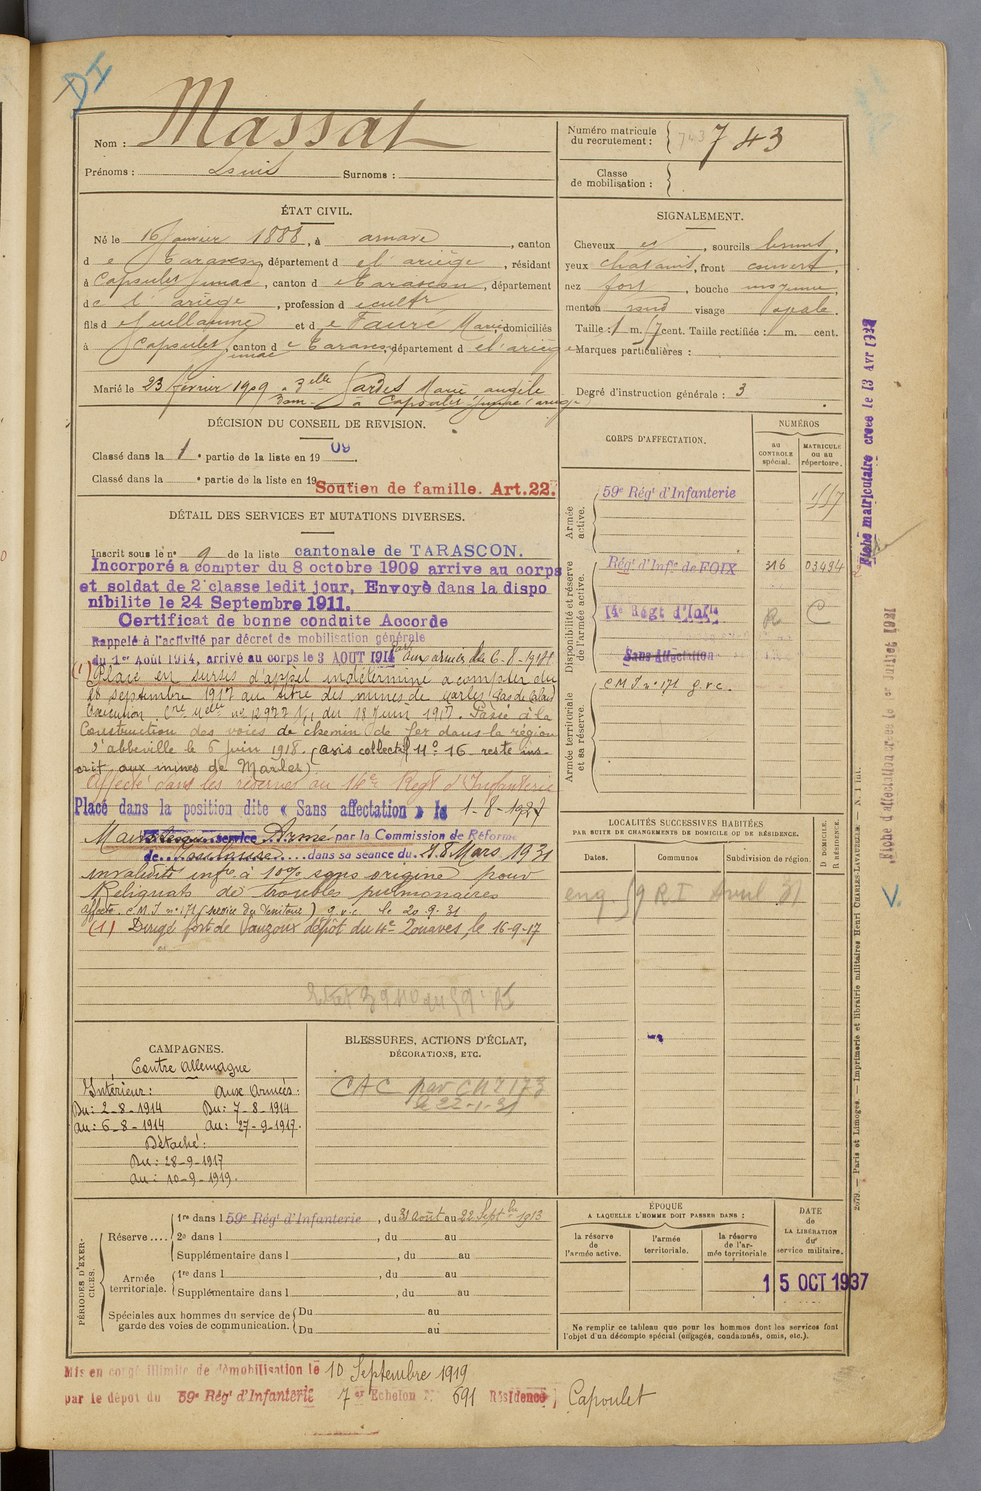 Nom : Massat
Prénoms : Louis Surnoms :
Numéro matricule du recrutement : 743 743
Classe de mobilisation :
ÉTAT CIVIL.
Né le 16 Janvier 1888, à arnave, canton
de Tarascon, département de l'ariège, résidant
à Capoulet Junac, canton de Tarascon, département
de l'ariège, profession d cultr
fils de Guillaume et de Faure Marie, domiciliés
à Capoulet Junac, canton de Tarascon, département de l'ariège
Marié le 23 février 1909 à Melle Gardes Marie angèle
dom. à Capoulet Junac (ariège)
SIGNALEMENT.
Cheveux et, sourcils bruns,
yeux chatains, front couvert,
nez fort, bouche moyenne,
menton rond visage ovale.
Taille : 1 m. 57 cent. Taille rectifiée : m. cent.
Marques particulières :
Degré d'instruction générale : 3
DÉCISION DU CONSEIL DE REVISION.
Classé dans la 1e partie de la liste en 1909
Classé dans la e partie de la liste en 19
Soutien de famille. Art.22.
DÉTAIL DES SERVICES ET MUTATIONS DIVERSES.
Inscrit sous le n° 9 de la liste cantonale de TARASCON.
Incorporé a compter du 8 octobre 1909 arrive au corps
et soldat de 2e classe ledit jour, Envoyè dans la dispo
nibilite le 24 Septembre 1911.
Certificat de bonne conduite Accorde
Rappelé à l'activité par décret de mobilisation générale
du 1er Août 1914, arrivé au corps le 3 AOUT 1914 aux armées
(1) Placé en sursis d'appel indéterminé a compter du
28 septembre 1917 au titre des mines de Marles (Pas de Calais)
Exécution Cre Melle n° 12977 1/1 du 18 Juin 1917. Passé à la
Construction des voies de chemin de fer dans la région
d'abbeville le 6 juin 1918. (avis collectif n° 16 reste ins-
crit aux mines de Marles)
Affecté dans les réserves au 14e Régt d'Infanterie
Placé dans la position dite « Sans affectation » le 1-8-1927
Maintenu service Armé par la Commission de Réforme
de Toulouse dans sa séance du 18 Mars 1931
invalidité infre à 10% sans origine pour
Reliquats de troubles pulmonaires
affecté C.M.I. n° 171 g.v.c. le 20.9.31
(1) Dirigé fort de Vaujours dépôt du 4e Zouaves, le 16-9-17
CORPS D'AFFECTATION.
NUMÉROS
au CONTROLE spécial.
MATRICULE ou au répertoire.
Armée active.
59e Régt d'Infanterie
Disponibilité et réserve de l'armée active.
Régt d'Infie de FOIX 316 03494
14e Régt d'Infie R C
Sans Affectation
Armée territoriale et sa réserve.
C M I n° 171 g.v.c.
LOCALITÉS SUCCESSIVES HABITÉES
PAR SUITE DE CHANGEMENTS DE DOMICILE OU DE RÉSIDENCE.
Dates. Communes Subdivision de région.
D DOMICILE.
R RÉSIDENCE.
enq. 59 R I Avril 31
CAMPAGNES.
Contre Allemagne
Intérieur : Aux Armées :
Du : 2-8-1914 Du : 7-8-1914
au : 6-8-1914 au : 27-9-1917.
Détaché :
Du : 28-9-1917
au : 10-9-1919.
BLESSURES, ACTIONS D'ÉCLAT,
DÉCORATIONS, ETC.
CAC par
le 22-1-31
PÉRIODES D'EXERCICES.
Réserve .... 1re dans l 59e Régt d'Infanterie, du 31 Août au 22 Septbre 1913
2e dans l , du au
Supplémentaire dans l , du au
Armée territoriale. 1re dans l , du au
Supplémentaire dans l , du au
Spéciales aux hommes du service de garde des voies de communication. Du au
Du au
ÉPOQUE
A LAQUELLE L'HOMME DOIT PASSER DANS :
la réserve de l'armée active.
l'armée territoriale.
la réserve de l'armée territoriale
DATE de LA LIBÉRATION du service militaire.
15 OCT 1937
Ne remplir ce tableau que pour les hommes dont les services font
l'objet d'un décompte spécial (engagés, condamnés, omis, etc.).
Mis en congé illimité de démobilisation le 10 Septembre 1919
par le dépôt du 59e Régt d'Infanterie 7er Echelon N° 691 Résidence, Capoulet
Fiche matriculaire créée le 13 Avr 1932
Fiche d'affectation créée le 1er Juillet 1931
2679. — Paris et Limoges. — Imprimerie et librairie militaires Henri CHARLES-LAVAUZELLE. — N. 1 int.